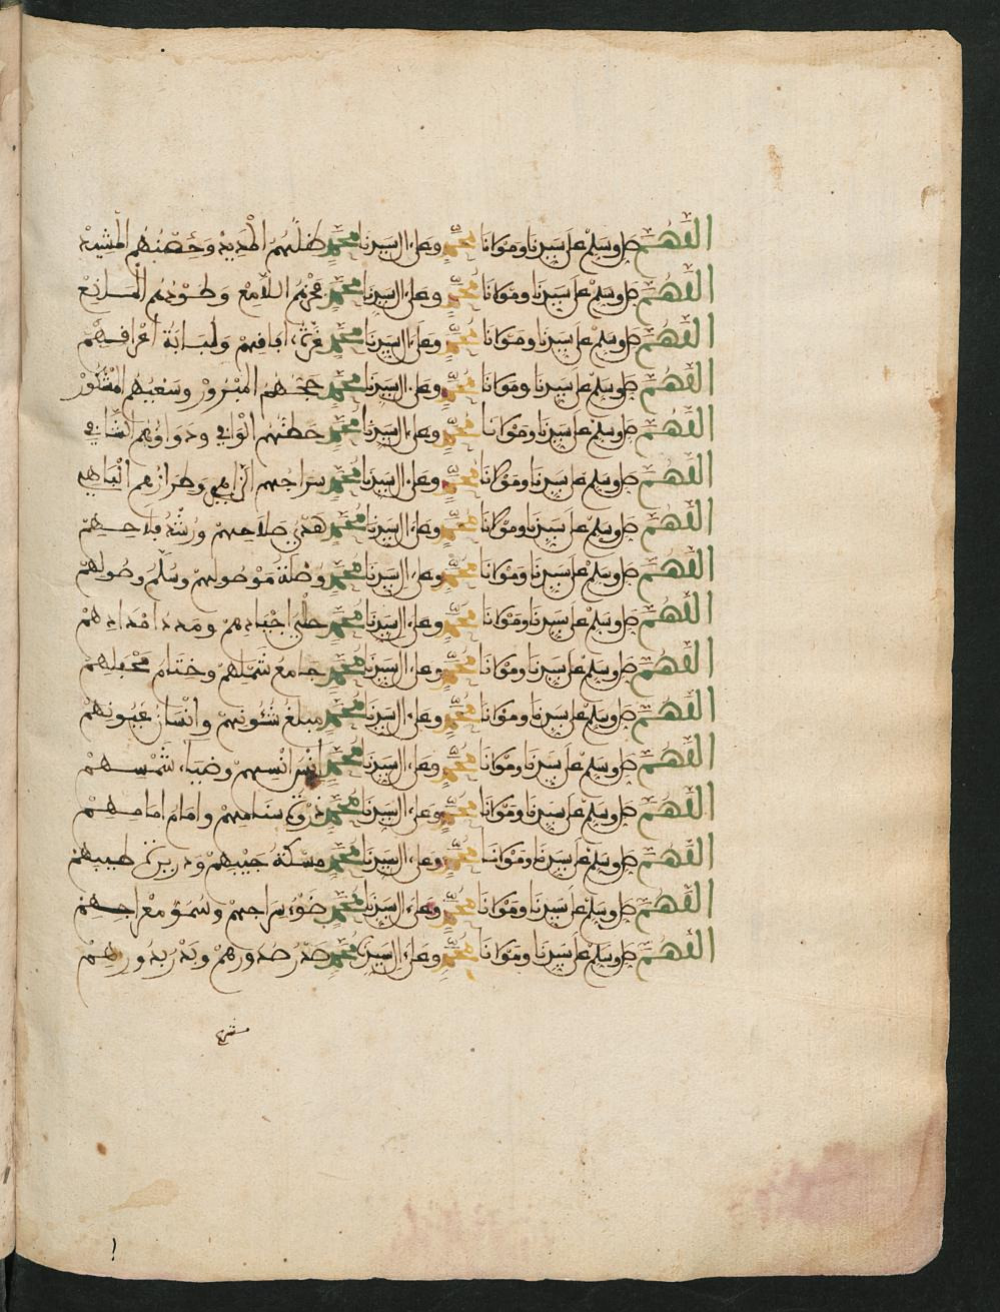 اللهم صل وسلم على سيدنا ومولانا محمد وعلى ءال سيدنا محمد ظلهم المديد وحصنهم المشيد
اللهم صل وسلم على سيدنا ومولانا محمد وعلى ءال سيدنا محمد اللامع وطودهم
اللهم صل وسلم على سيدنا ومولانا محمد وعلى ءال سيدنا محمد غرة ءافافهم ولبابة أعرافهم
اللهم صل وسلم على سيدنا ومولانا محمد وعلى ءال سيدنا محمد حجهم المبرور وسعيهم المشكور
اللهم صل وسلم على سيدنا ومولانا محمد وعلى ءال سيدنا محمد الواقي ودواؤهم الشافي
اللهم صل وسلم على سيدنا ومولانا محمد وعلى ءال سيدنا محمد سراجهم الزاهي وطرازهم الباهي
اللهم صل وسلم على سيدنا ومولانا محمد وعلى ءال سيدنا محمد هدي صلاحهم ورشد فلاحهم
اللهم صل وسلم على سيدنا ومولانا محمد وعلى ءال سيدنا محمد وصلة موصولهم وسلم وصولهم
اللهم صل وسلم على سيدنا ومولانا محمد وعلى ءال سيدنا محمد حلي اجيادهم ومدد امدادهم
اللهم صل وسلم على سيدنا ومولانا محمد وعلى ءال سيدنا محمد جامع شملهم وختام محفلهم
اللهم صل وسلم على سيدنا ومولانا محمد وعلى ءال سيدنا محمد مبلغ شئونهم وانسان عيونهم
اللهم صل وسلم على سيدنا ومولانا محمد وعلى ءال سيدنا محمد أنس انسهم وضياء شمسهم
اللهم صل وسلم على سيدنا ومولانا محمد وعلى ءال سيدنا محمد ذروة سنامهم وامام امامهم
اللهم صل وسلم على سيدنا ومولانا محمد وعلى ءال سيدنا محمد مسكة جيبهم وذريرة طيبهم
اللهم صل وسلم على سيدنا ومولانا محمد وعلى ءال سيدنا محمد ضوء سراجهم وسمو معراجهم
اللهم صل وسلم على سيدنا ومولانا محمد وعلى ءال سيدنا محمد صدر صدورهم وبدر بدورهم